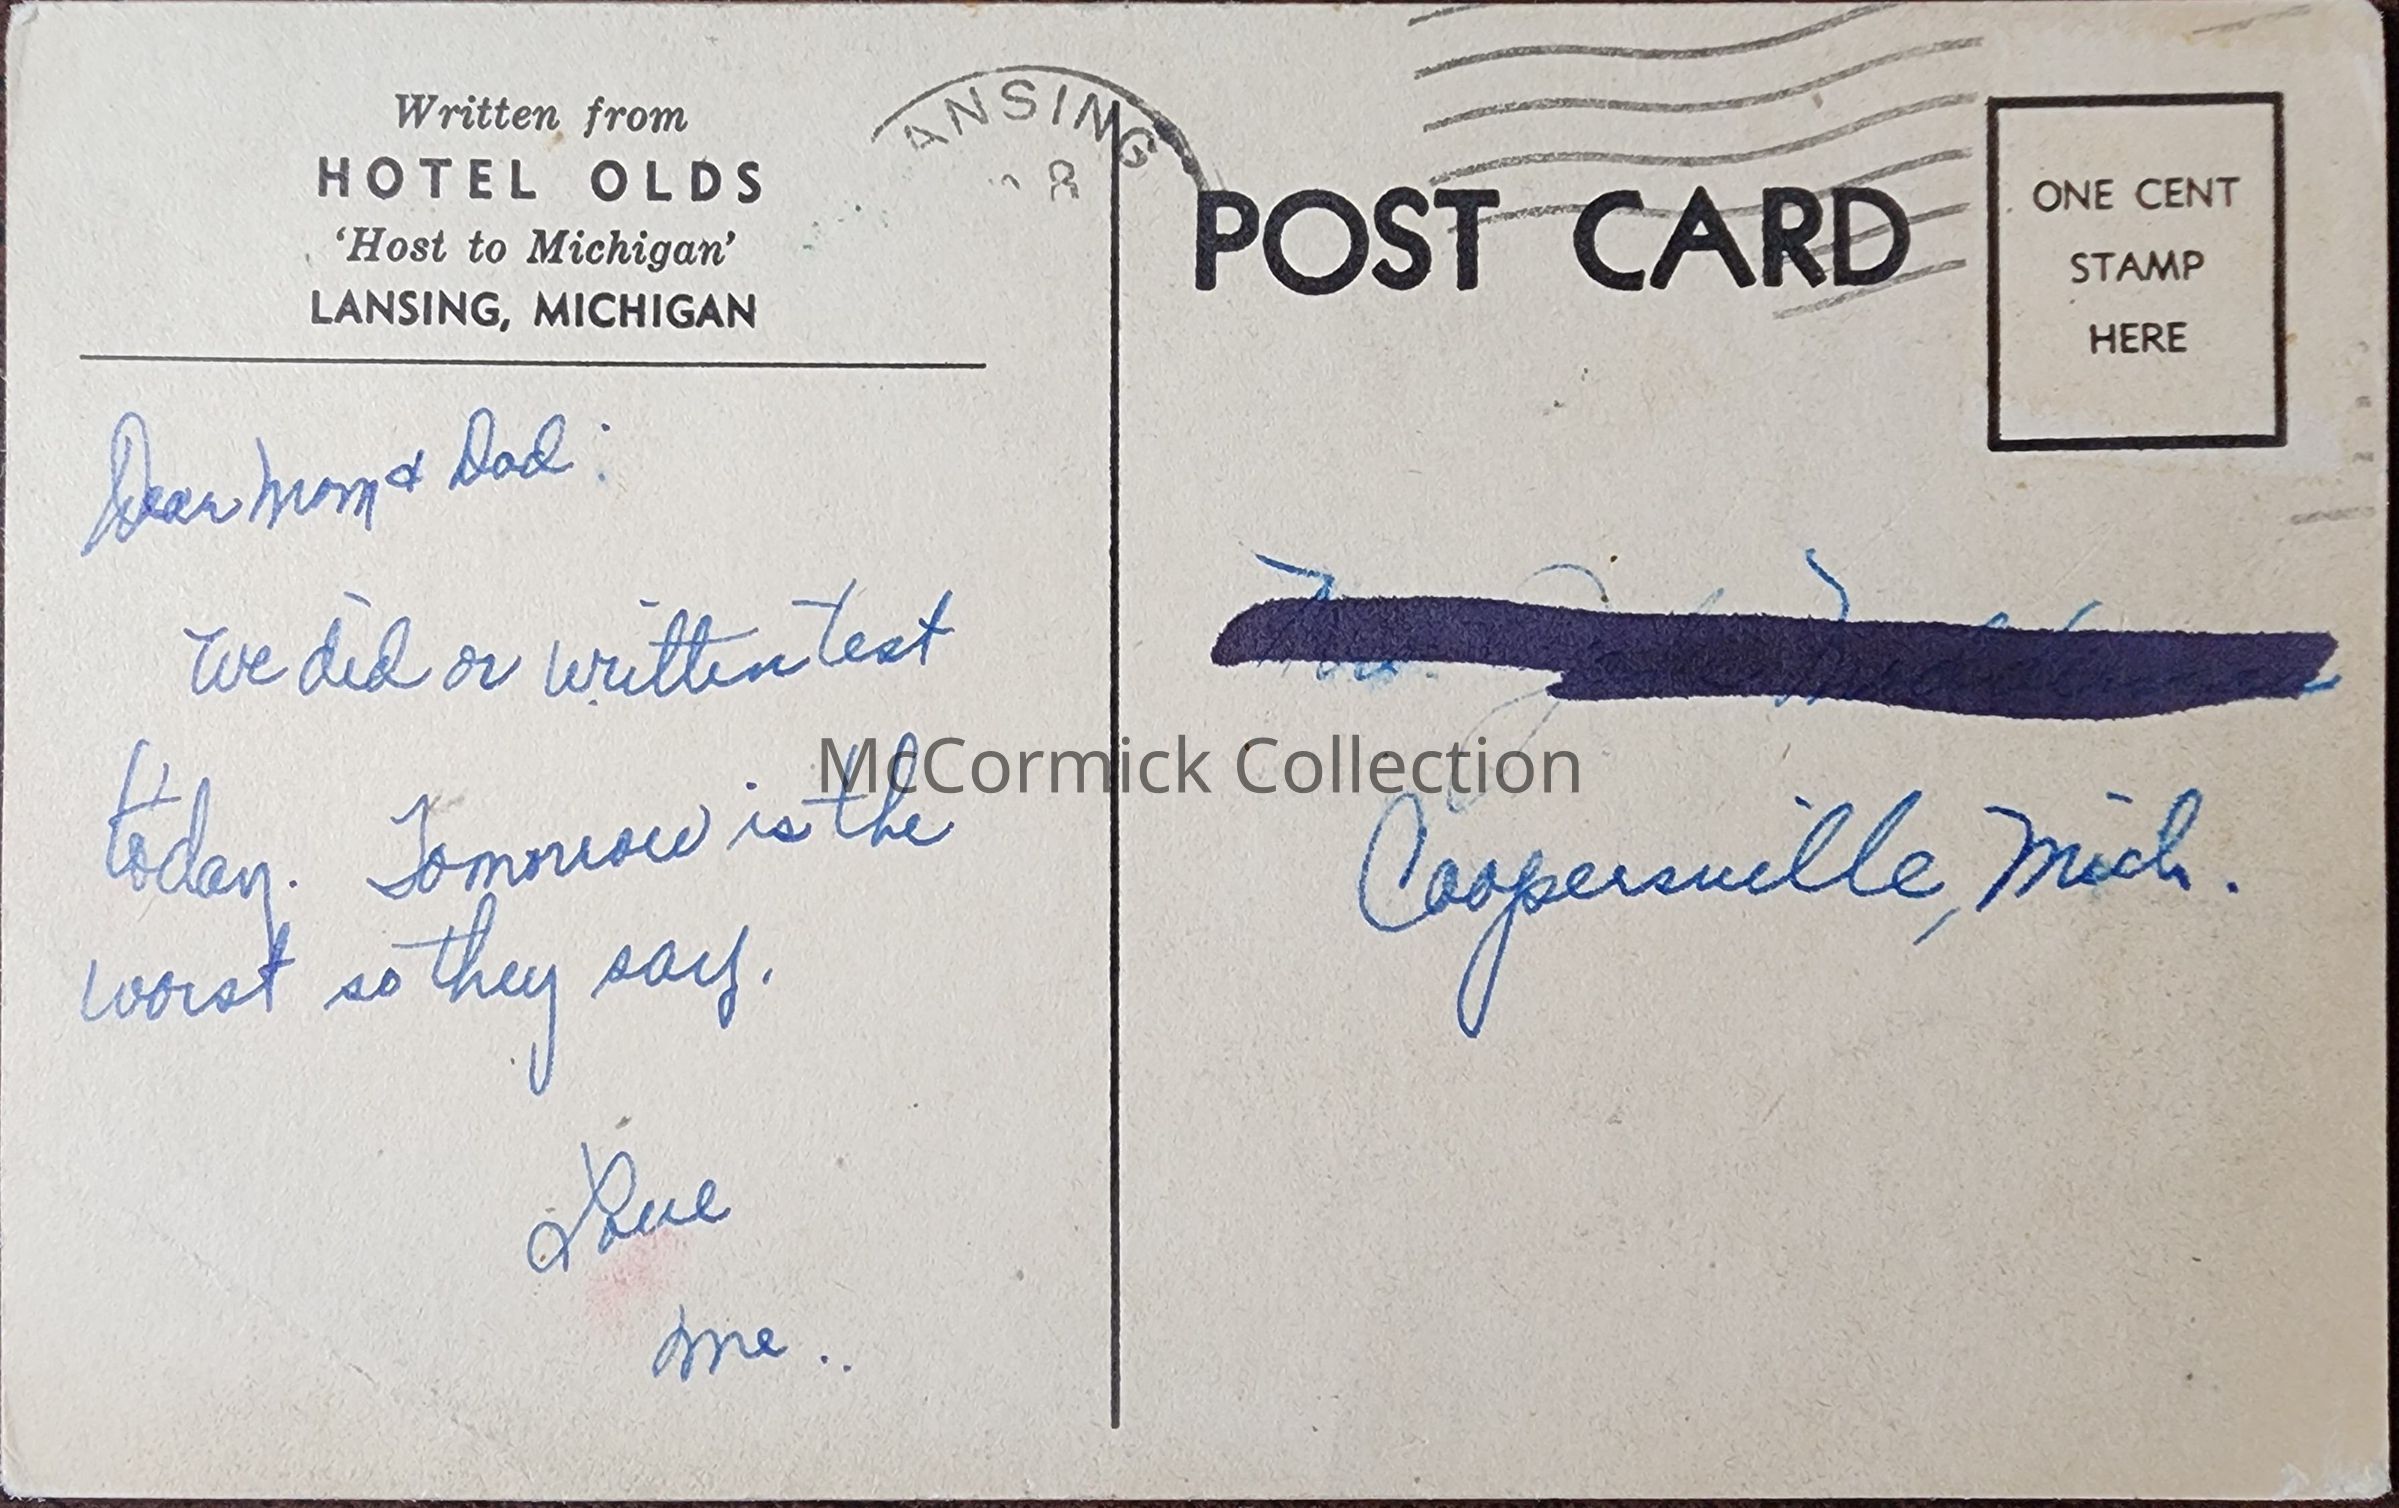 Written from
HOTEL OLDS
'Host to Michigan'
LANSING, MICHIGAN
ANSING
8
POST CARD
ONE CENT
STAMP
HERE
Dear Mom & Dad:
We did or written test
today. Tomorrow is the
worst so they say.
Love
Me..
McCormick Collection
Coopersville, Mich.